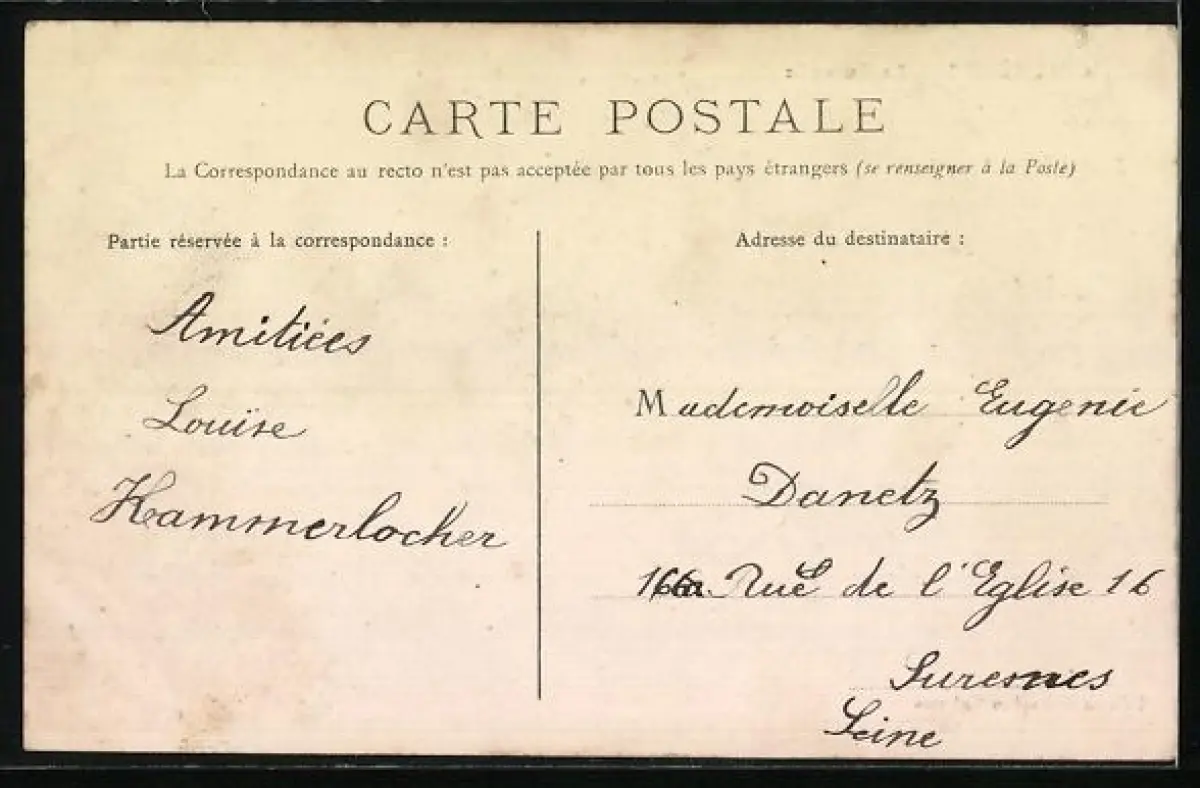 CARTE POSTALE
La Correspondance au recto n'est pas acceptée par tous les pays étrangers (se renseigner à la Poste)
Partie réservée à la correspondance :
Amitiées
Louïse
Hammerlocher
Adresse du destinataire :
Mademoiselle Eugenie
Danetz
Rue de l'Eglise 16
Suresnes
Seine